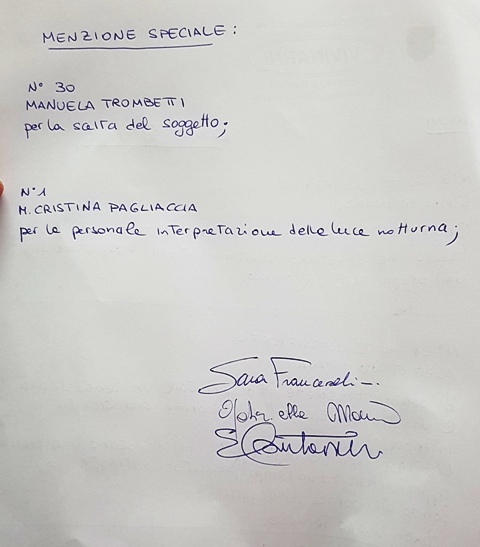 MENZIONE SPECIALE:
N° 30
MANUELA TROMBETTI
per la scelta del soggetto;
N°1
M. CRISTINA PAGLIACCIA
per la personale interpretazione della luce notturna;
Sara